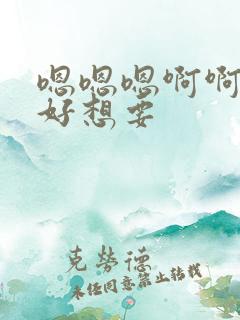 嗯嗯嗯啊啊
好想要
克劳德
未经同意禁止转载